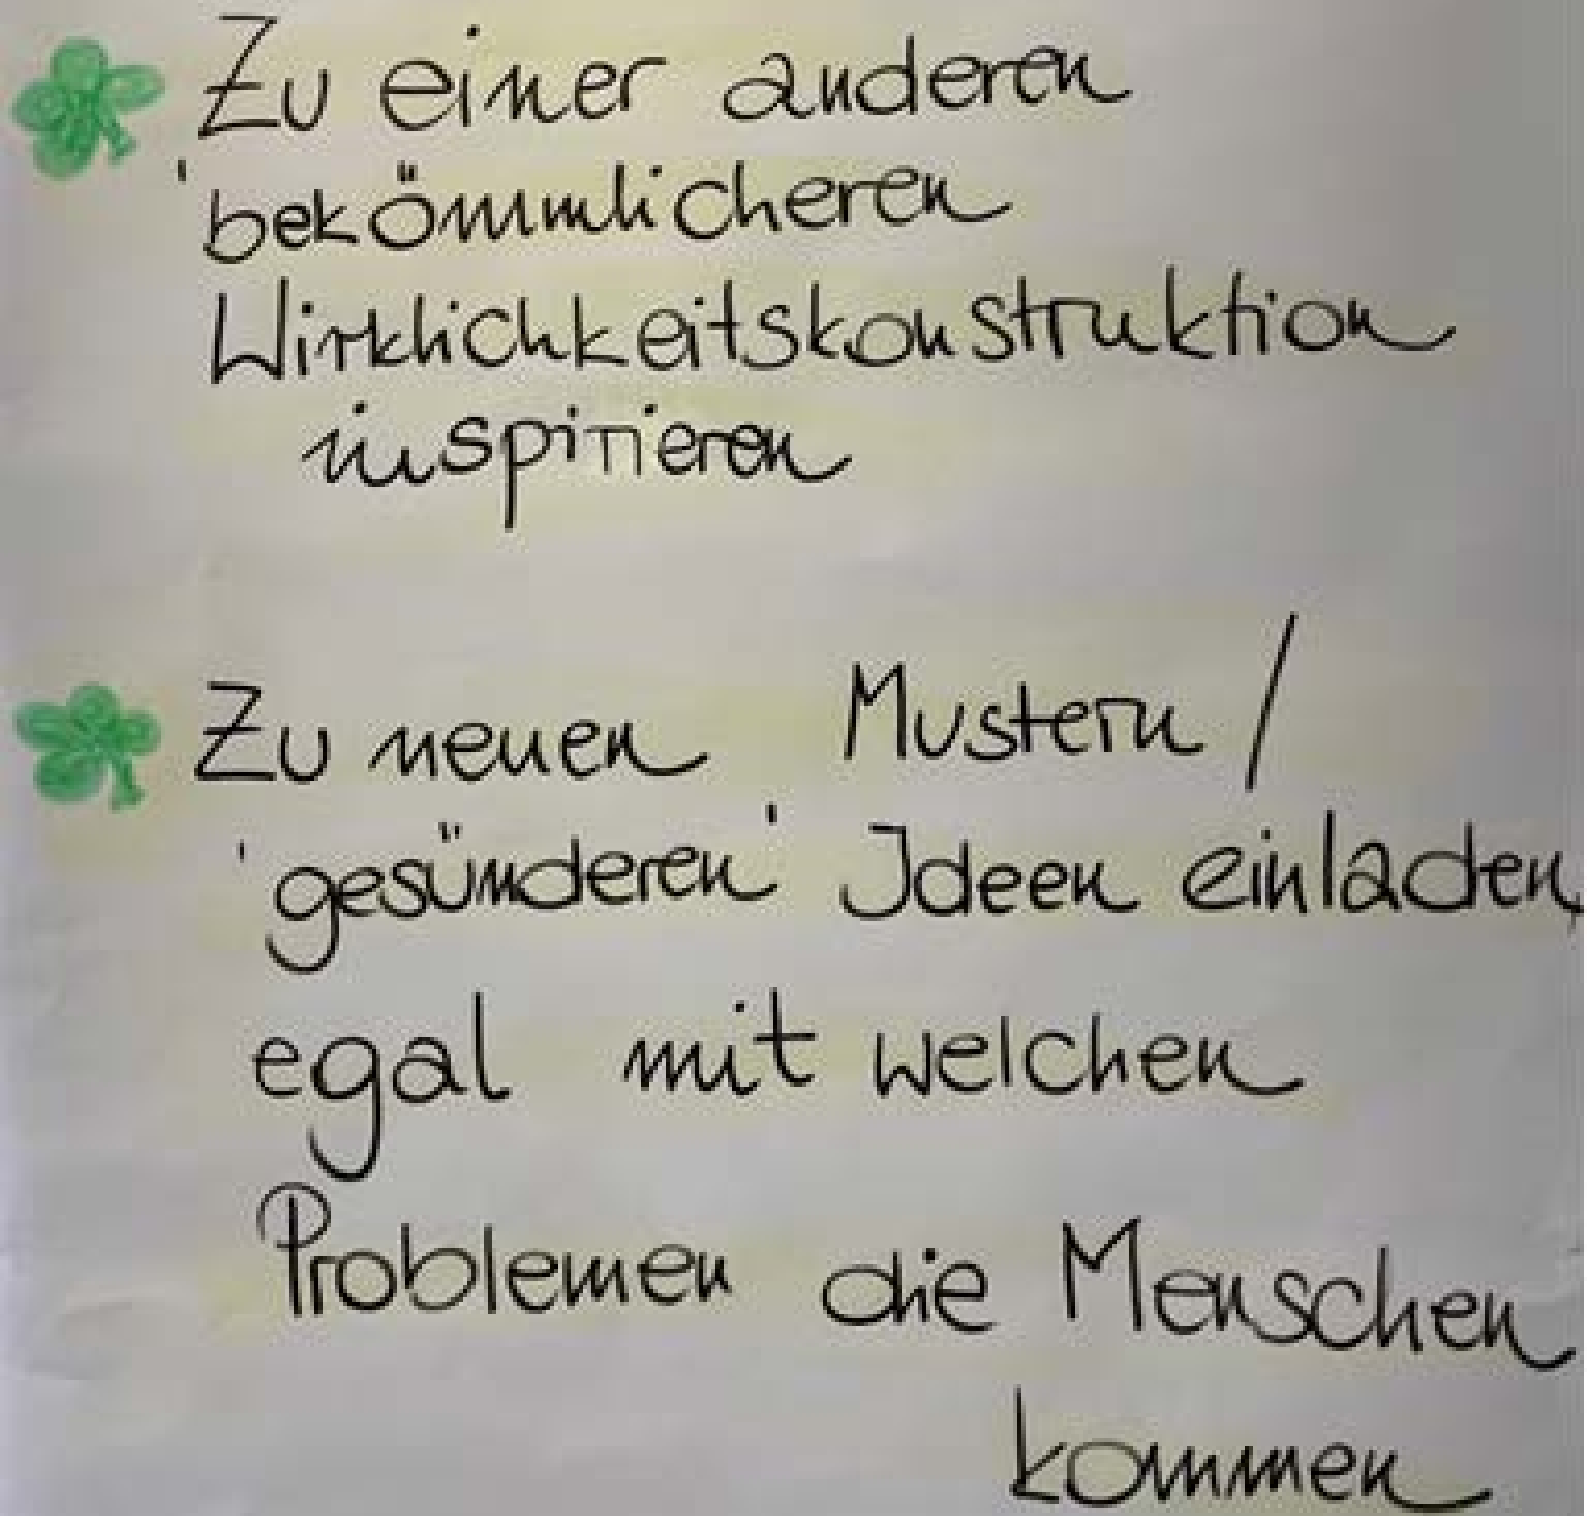 Zu einer anderen
'bekömmlicheren
Wirklichkeitskonstruktion
inspirieren
Zu neuen Mustern /
'gesünderen' Ideen einladen,
egal mit welchen
Problemen die Menschen
kommen